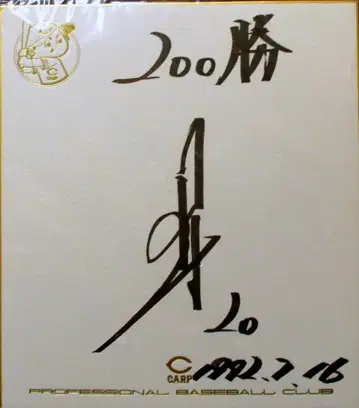 200勝
20
C
CARP
1992.7.16
PROFESSIONAL BASEBALL CLUB